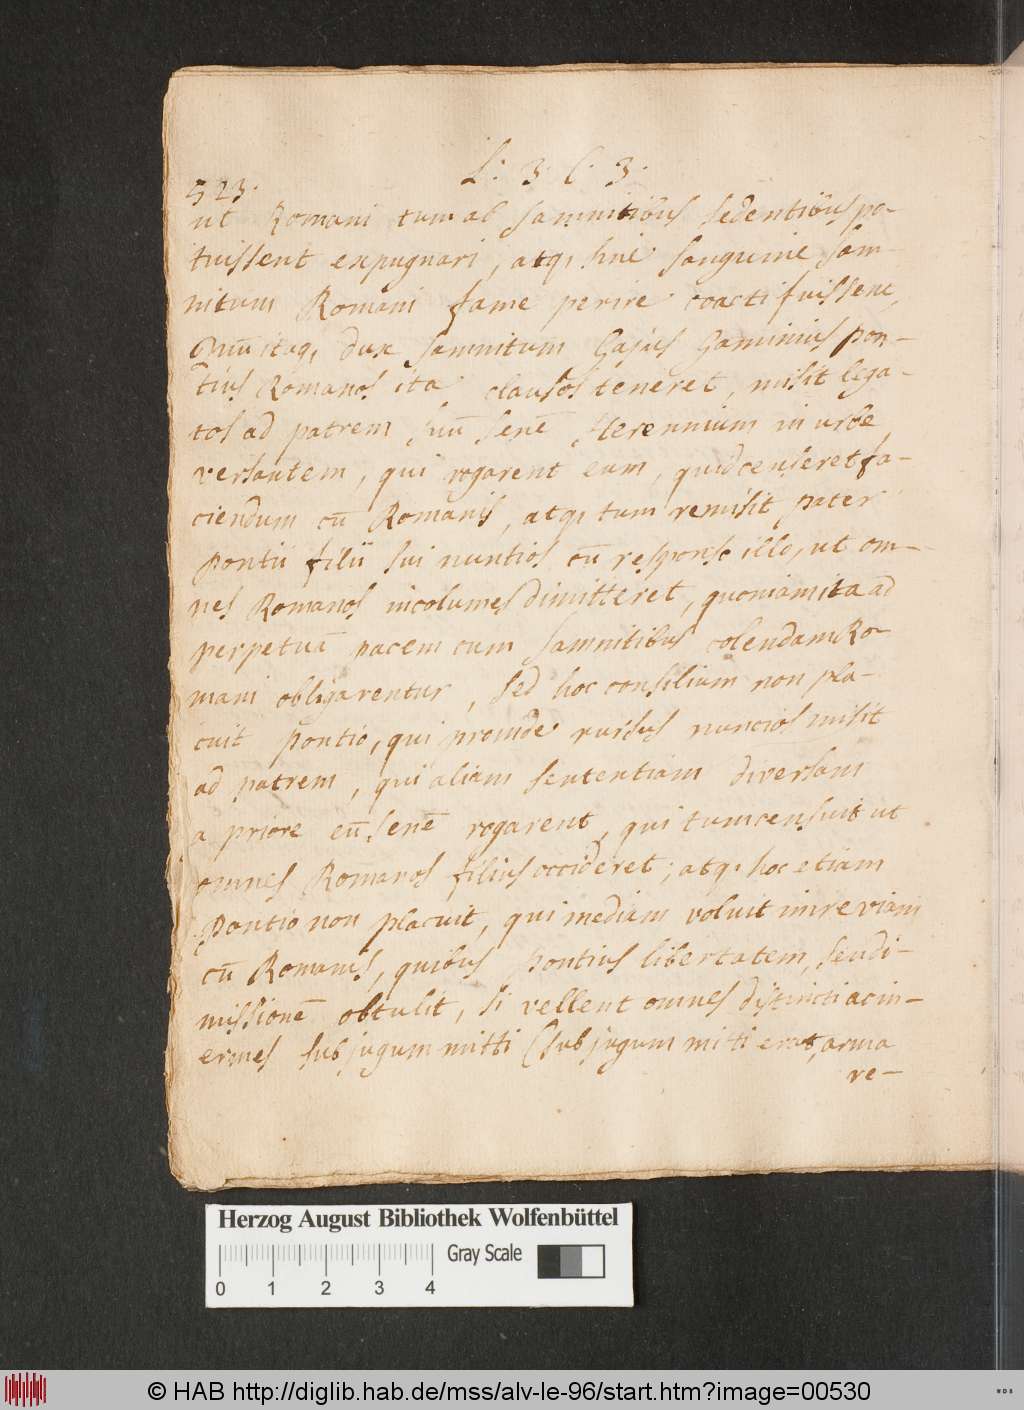 L: 3 C. 3.
523.
ut Romani tum ab samnitibus sedentibus po-
tuissent expugnari, atq, sine sanguine sam-
nitum Romani fame perire coacti fuissent,
itaq, dux samnitum Gajus Gaminius pon-
tius Romanos ita clausos teneret, misit lega-
tos ad patrem suū senē Herennium in urbe
versantem, qui rogarent eum, quid censeret fa-
ciendum cū Romanis, atq, tum remisit pater
pontii filii sui nuntios cū response illo, ut om-
nes Romanos incolumes dimitteret, quoniam ita ad
perpetuā pacem cum samnitibus colendam Ro-
mani obligarentur, sed hoc consilium non pla-
cuit pontio, qui proinde rursus nuncios misit
ad patrem, qui aliam sententiam diversam
a priore eū senē rogarent, qui tum censuit ut
omnes Romanos filius occideret; atq, hoc etiam
pontio non placuit, qui mediam voluit inire viam
cū Romanis, quibus pontius libertatem, seu di-
missionē obtulit, si vellent omnes distincti ac in-
ermes sub jugum mitti (sub jugum mitti erat, arma
re-
Herzog August Bibliothek Wolfenbüttel
Gray Scale
0 1 2 3 4
© HAB http://diglib.hab.de/mss/alv-le-96/start.htm?image=00530